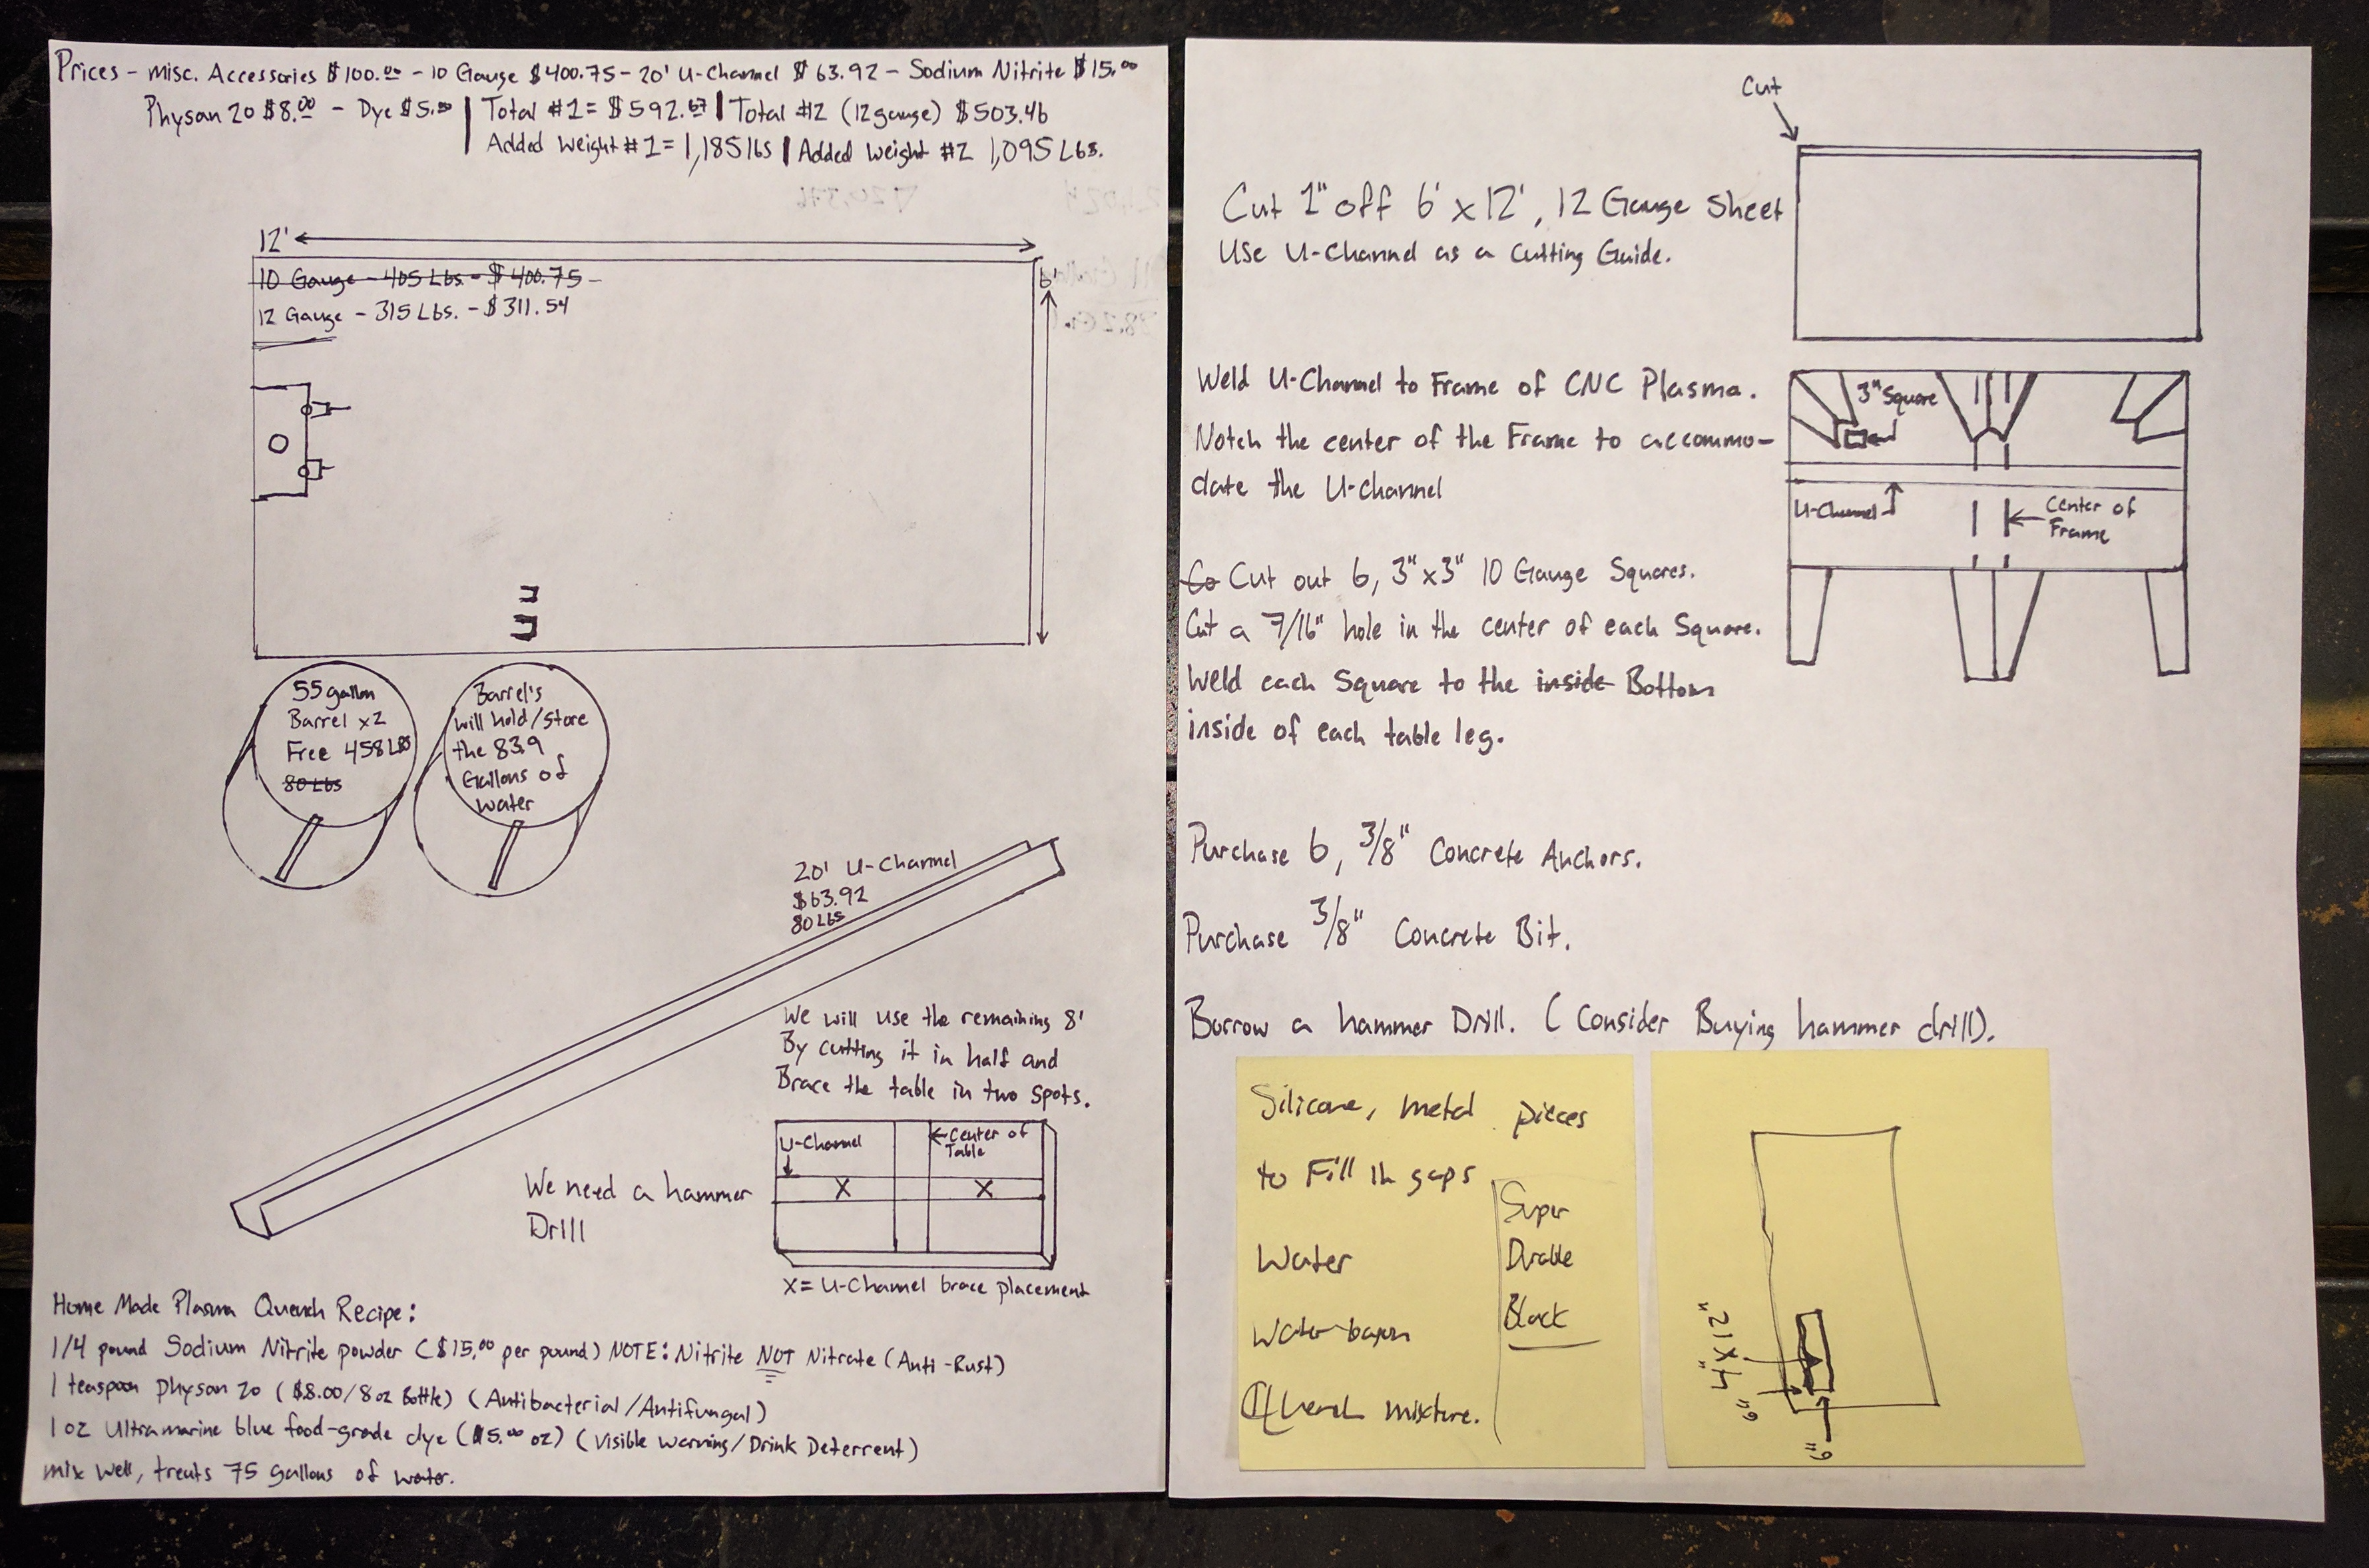 Prices - misc. Accessories $100.00 - 10 Gauge $400.75 - 20' U-Channel $63.92 - Sodium Nitrite $15.00
Physan 20 $8.00 - Dye $5.00 | Total #1 = $592.67 | Total #2 (12 gauge) $503.46
Added Weight #1 = 1,185 lbs | Added Weight #2 1,095 Lbs.
12'
10 Gauge - 405 Lbs. - $400.75 -
12 Gauge - 315 Lbs. - $311.54
6'
55 gallon
Barrel x2
Free 458 LBS
80 Lbs
Barrel's
will hold/store
the 83.9
Gallons of
water
20' U-Channel
$63.92
80 Lbs
We will use the remaining 8'
By cutting it in half and
Brace the table in two spots.
U-Channel
Center of
Table
X X
We need a hammer
Drill
X = U-Channel brace placement
Home Made Plasma Quench Recipe:
1/4 pound Sodium Nitrite powder ($15.00 per pound) NOTE: Nitrite NOT Nitrate (Anti-Rust)
1 teaspoon physan 20 ($8.00/8oz Bottle) (Antibacterial/Antifungal)
1 oz Ultramarine blue food-grade dye ($5.00 oz) (Visible Warning/Drink Deterrent)
mix well, treats 75 gallons of water.
Cut
Cut 1" off 6' x 12', 12 Gauge Sheet
Use U-Channel as a Cutting Guide.
Weld U-Channel to Frame of CNC Plasma.
Notch the center of the Frame to accommo-
date the U-Channel
3" Square
U-Channel
Center of
Frame
Co Cut out 6, 3"x3" 10 Gauge Squares.
Cut a 7/16" hole in the center of each Square.
Weld each Square to the inside Bottom
inside of each table leg.
Purchase 6, 3/8" Concrete Anchors.
Purchase 3/8" Concrete Bit.
Borrow a hammer Drill. (Consider Buying hammer drill).
Silicone, metal pieces
to Fill in gaps
Super
Durable
Black
Water
Quench mixture.
4 x 12"
6"
6"